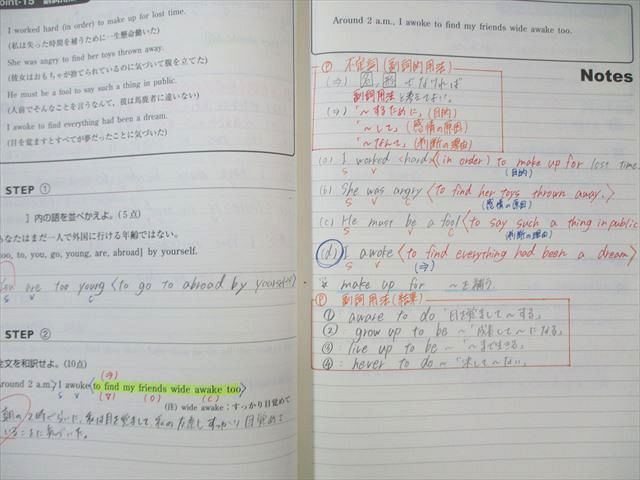 oint-15
I worked hard (in order) to make up for lost time.
(私は失った時間を補うために一生懸命働いた)
She was angry to find her toys thrown away.
(彼女はおもちゃが捨てられているのに気づいて腹を立てた)
He must be a fool to say such a thing in public.
(人前でそんなことを言うなんて，彼は馬鹿者に違いない)
I awoke to find everything had been a dream.
(目を覚ますとすべてが夢だったことに気づいた)
STEP ①
］内の語を並べかえよ。(5点)
あなたはまだ一人で外国に行ける年齢ではない。
oo, to, you, go, young, are, abroad] by yourself.
are too young <to go to abroad by yourself>
S V C
STEP ②
全文を和訳せよ。(10点)
(⇒)
Around 2 a.m.> I awoke <to find my friends wide awake too>
S V (V) (O) (C)
(注) wide awake：すっかり目覚めて
朝の2時ぐらいに、私は目を覚まして、私の友達もすっかり目覚めて
いることに気づいた。
Around 2 a.m., I awoke to find my friends wide awake too.
Notes
Ⓟ 不定詞(副詞的用法)
(⇒) 名, 形 でなければ
副詞用法と考えてよい。
(⇒)「～するために」(目的)
「～して」(感情の原因)
「～なんて」(判断の理由)
(a) I worked <hard> <(in order) to make up for lost time.
S V (目的)
(b) She was angry <to find her toys thrown away.>
S V C (感情の原因)
(c) He must be a fool <to say such a thing in public
S V C (判断の理由)
(d) I awoke <to find everything had been a dream>
S V (⇒)
※ make up for ～を補う
Ⓟ 副詞用法(結果)
①: aware to do「目を覚まして～する」
②: grow up to be ～「成長して～になる」
③: live up to be ～「～まで生きる」
④: never to do ～「決して～ない」